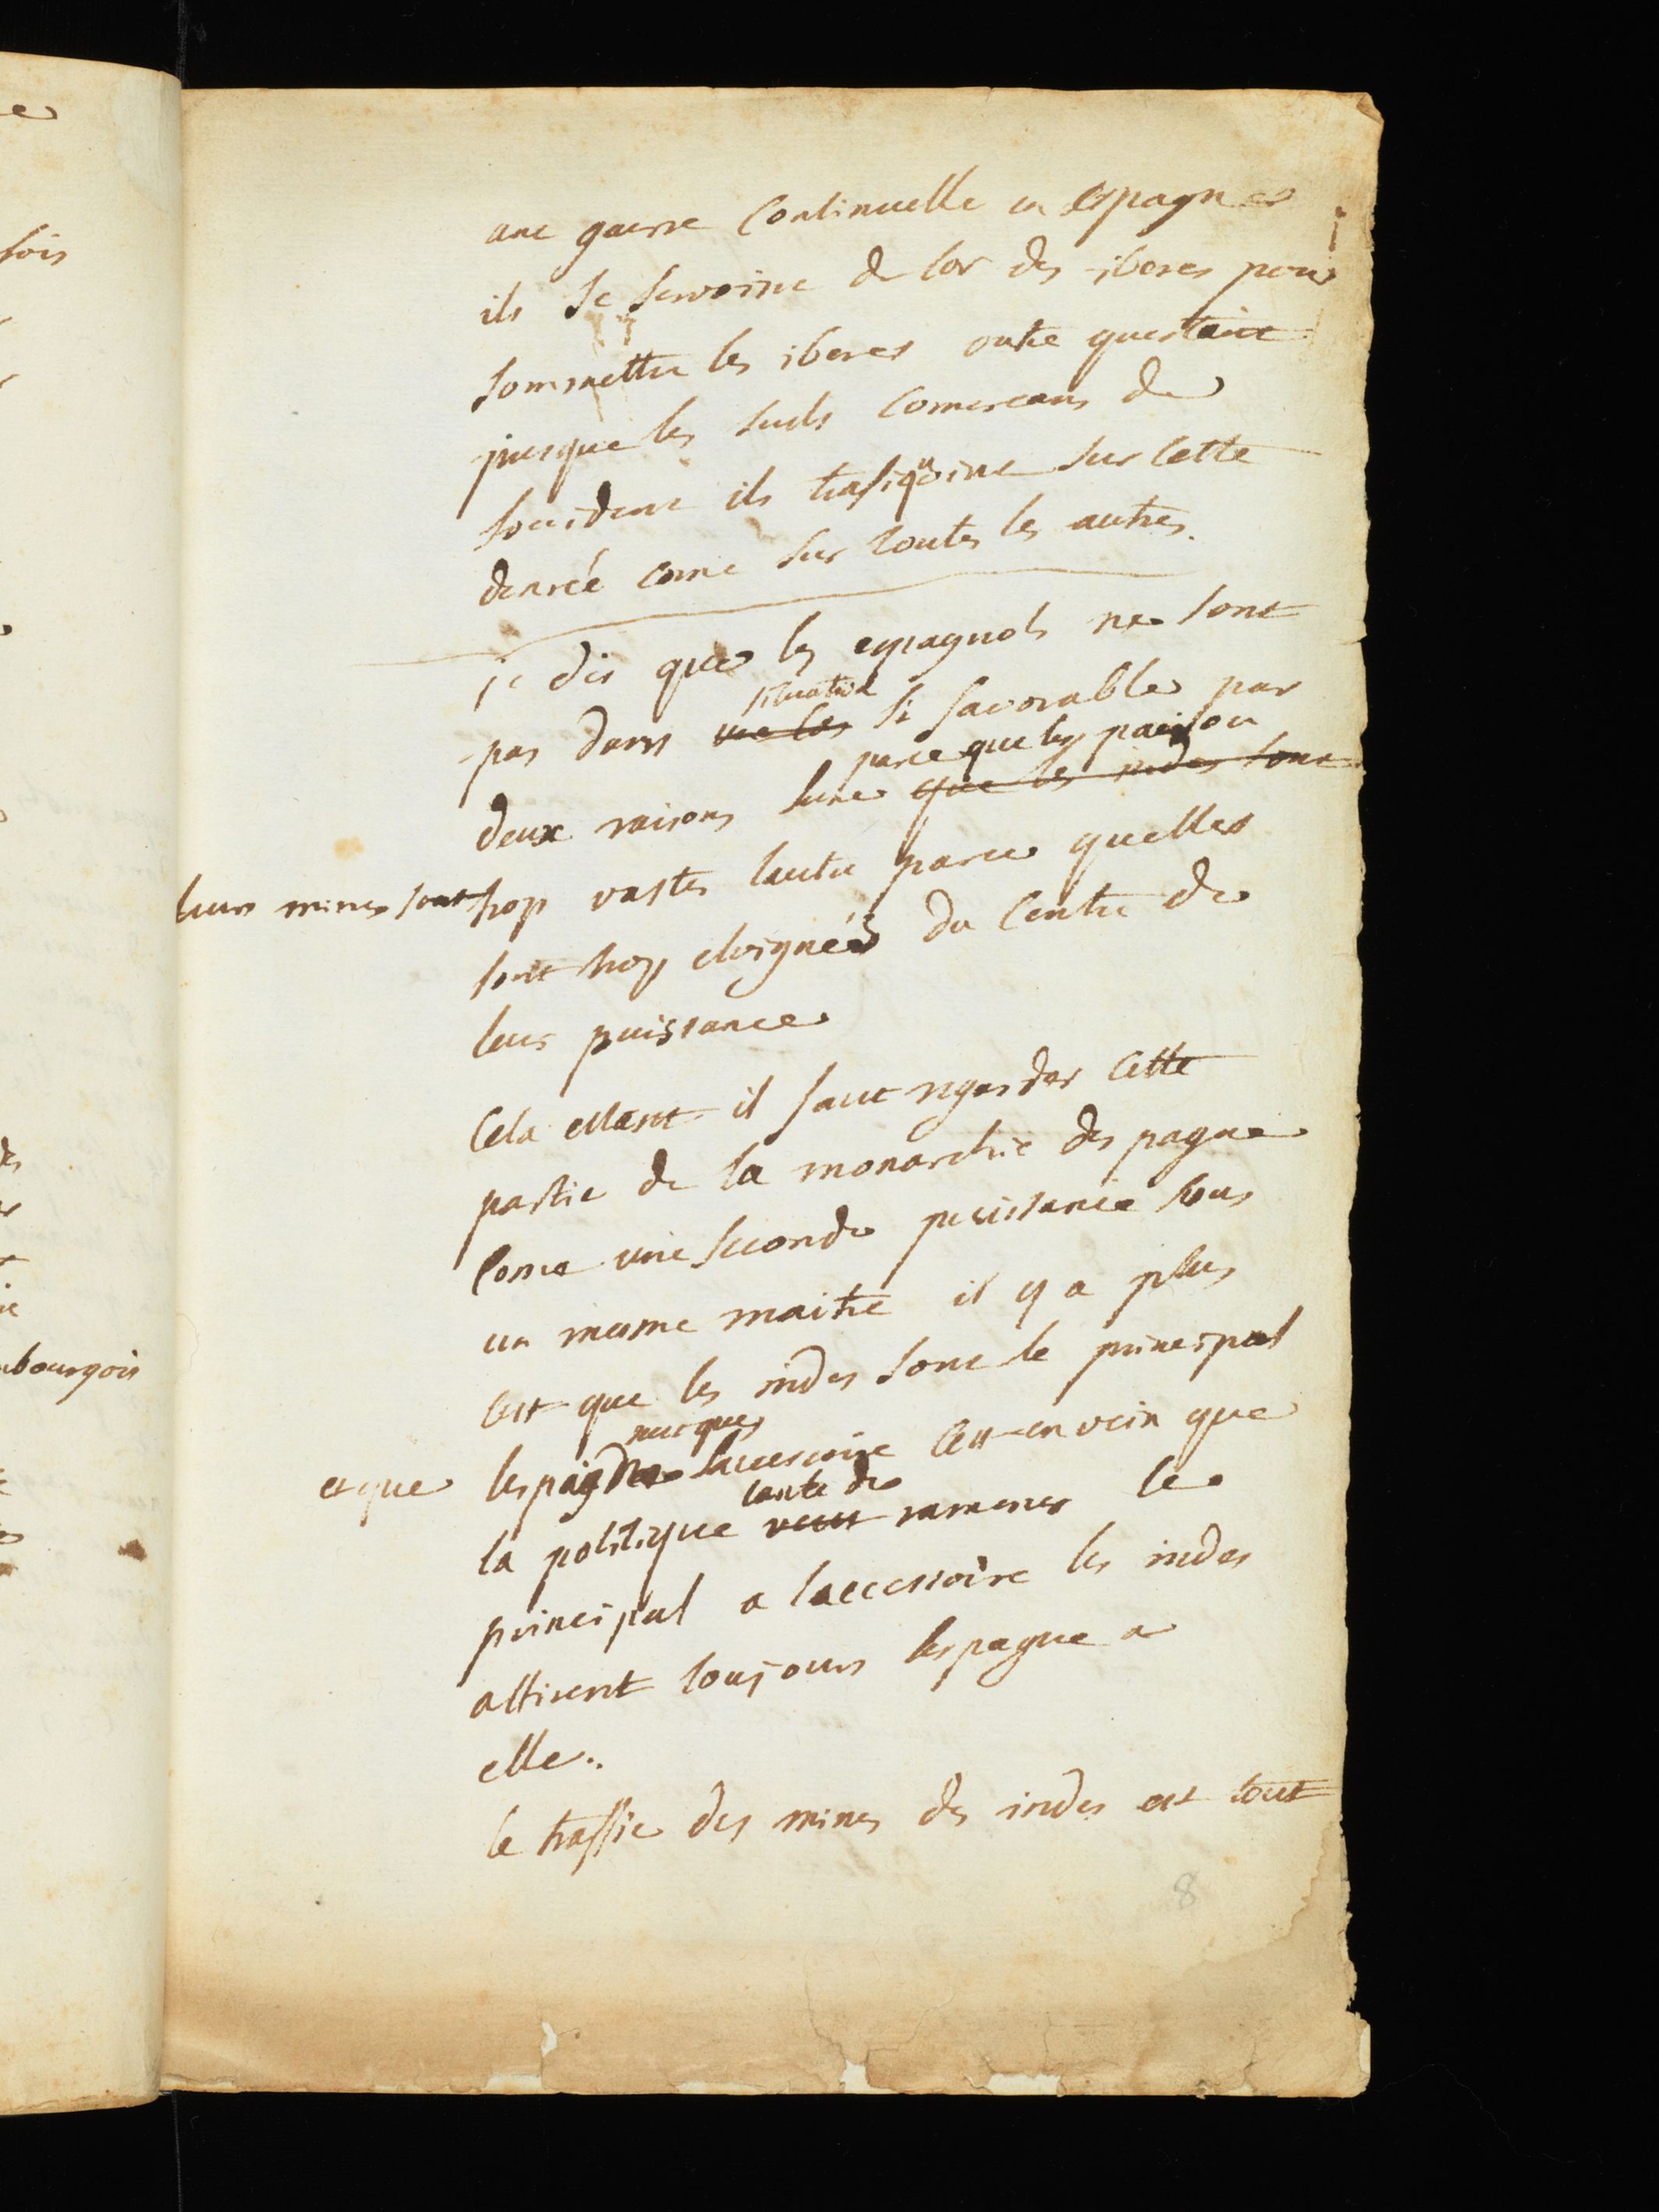 une guerre continuelle en espagne
ils se servoint de lor des iberes pour
sommettre les iberes outre questant
presque les seuls comerceans de
loccident ils trafiquoint sur cette
denreé come sur toutes les autres.
je dis que les espagnols ne sont
situation
pas dans une si favorable par
parce que les pais ou
deux raisons lune que les indes sont
leurs mines sont trop vastes lautre parce quelles
sont trop eloignées du centre de
leur puissance
Cela estant il faut regarder cette
partie de la monarchie despagne
come une seconde puissance sous
un mesme maitre il y a plus
cest que les indes sont le principal
et que lespagne nest que laccessoire cest en vain que
tante de
la politique veut ramener le
principal a laccessoire les indes
attirent toujours lespagne a
elle.
le traffic des mines des indes est tout
8
fois
bourgois